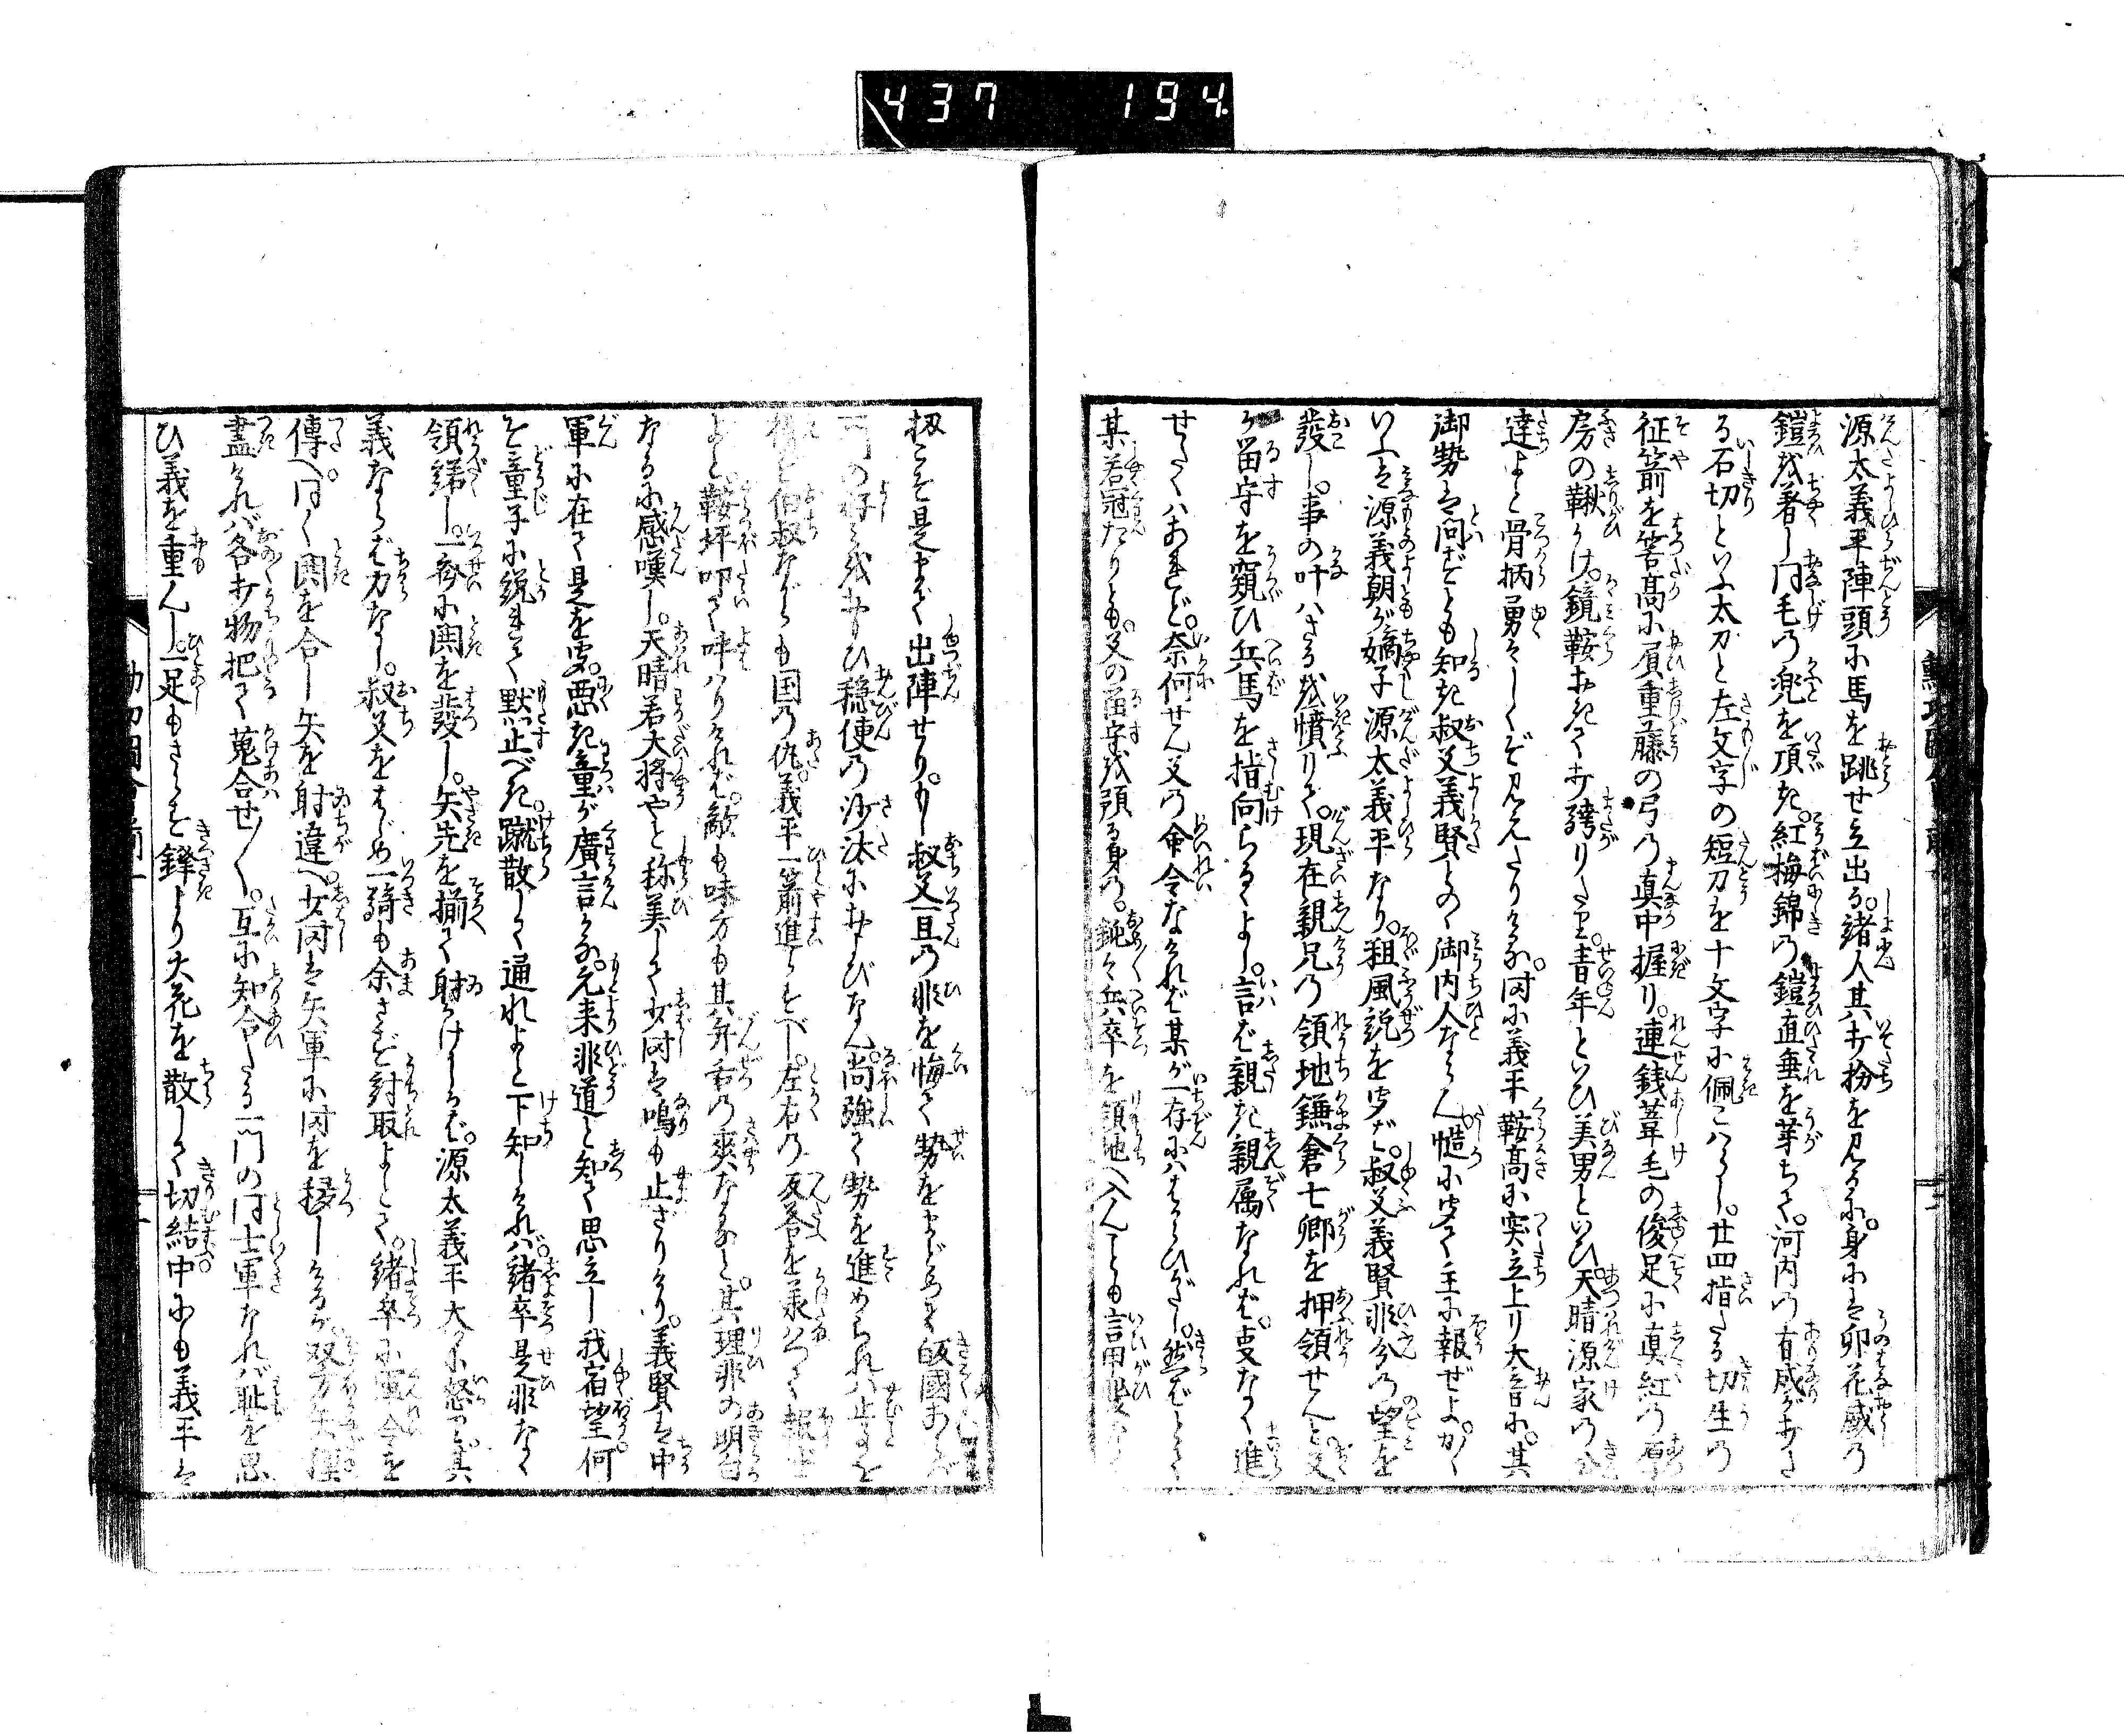 437 194
源太義平陣頭に馬を跳せ立出る。緒人其打扮を見るに。身には卯花威の
鎧を着し同毛の兜を頂き。紅梅錦の鎧直垂を芽ちて。河内の有成が打たる
石切といふ太刀と左文字の短刀を十文字に佩こぼらし。廿四指たる切生の
征箭を筈高に屓重藤の弓の真中握り。連銭葦毛の俊足に真紅の厚
房の鞦かけ。鏡鞍おきて打誇りたり。青年といひ美男といひ。天晴源家の公
達よと骨柄勇々しくぞ見えたりける。時に義平鞍髙に突立上り大音に。其
御勢は問ずとも知き叔父義賢どのゝ御内人ならん慥に聞て主に報ぜよ。かく
いふは源義朝が嫡子源太義平なり。粗風説を聞ば。叔父義賢非分の望を
發し。事の叶はざるを憤りて。現在親兄の領地鎌倉七郷を押領せんと父
が留守を窺ひ兵馬を指向らるゝよし。言ば親き親属なれば。支なく進
せたくはあれど。奈何せん父の命令なければ某が一存にははからひがたし。然ばとて
某若冠たりとも。父の留守を預る身の。鈍々兵卒を領地へ入んとも言甲斐なく
扨こそ是まで出陣せり。もし叔父一旦の非を悔て勢をまどめて皈國あらば
一門の好みをおもひ穏便の沙汰におよびなん。尚強て勢を進められば止事を
得ず伯叔ながらも国の仇。義平一箭進らすべし。左右の反答を承はつて報ぜ
よと。鞍坪叩て呼はりければ。敵も味方も其弁舌の爽なると。其理非の明白
なるに感嘆し。天晴若大将やと称美して少時は鳴も止ざりけり。義賢は中
軍に在て是を聞。悪き童が廣言かな。元来非道と知て思立し我宿望何
ぞ童子に説れて黙止べき。蹴散して通れよと下知しければ。緒卒是非なく
領掌し。一勢に鬨を發し。矢先を揃て射かけしかば。源太義平大に怒つて。其
義ならば力なし。叔父をはじめ一騎も余さず討取よとて。緒卒に軍令を
傳へ。同く鬨を合し矢を射違へ。少時は矢軍に時を移しけるが。双方矢種
盡ければ各打物把て蒐合せ〳〵。互に知合たる一門の同士軍なれば耻を思
ひ義を重んじ。一足もさらず鋒より火花を散して切結中にも義平は